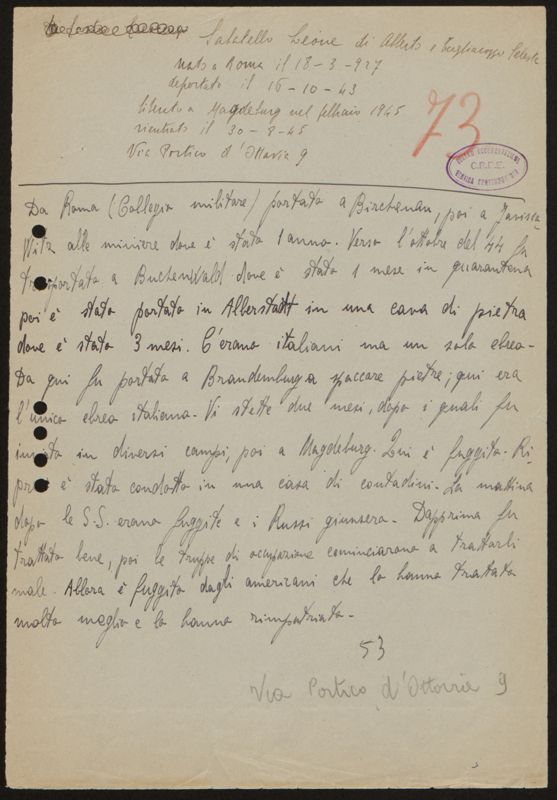 Sabatello Leone di Alberto e Tagliacozzo Celeste
nato a Roma il 18-3-927
deportato il 16-10-43
liberato a Magdeburg nel febbraio 1945
rientrato il 30-8-45
Via Portico d'Ottavia 9
73
C.R.D.E.
Da Roma (Collegio militare) portato a Birchenau, poi a Javisco
Vitz alle miniere dove è stato 1 anno. Verso l'ottobre del 44 fu
trasportato a Buchenwald dove è stato 1 mese in quarantena
poi è stato portato in Alberstadt in una cava di pietra
dove è stato 3 mesi. C'erano italiani ma un solo ebreo-
Da qui fu portato a Brandemburgo a spaccare pietre; qui era
l'unico ebreo italiano. Vi stette due mesi, dopo i quali fu
inviato in diversi campi, poi a Magdeburg. Qui è fuggito. Ri-
preso è stato condotto in una casa di contadini. La mattina
dopo le S.S. erano fuggite e i Russi giunsero. Dapprima fu
trattato bene, poi le truppe di occupazione cominciarono a trattarli
male. Allora è fuggito dagli americani che lo hanno trattato
molto meglio e lo hanno rimpatriato-
53
Via Portico d'Ottavia 9